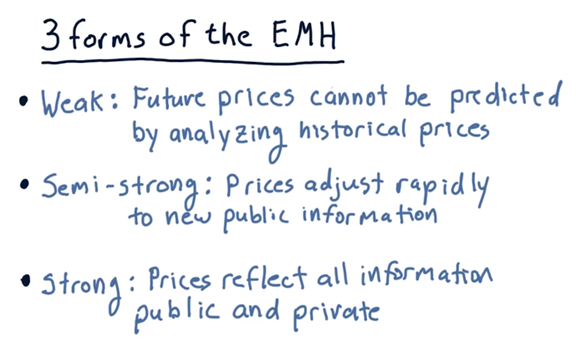 3 forms of the EMH
• Weak: Future prices cannot be predicted
by analyzing historical prices
• Semi-strong: Prices adjust rapidly
to new public information
• Strong: Prices reflect all information
public and private